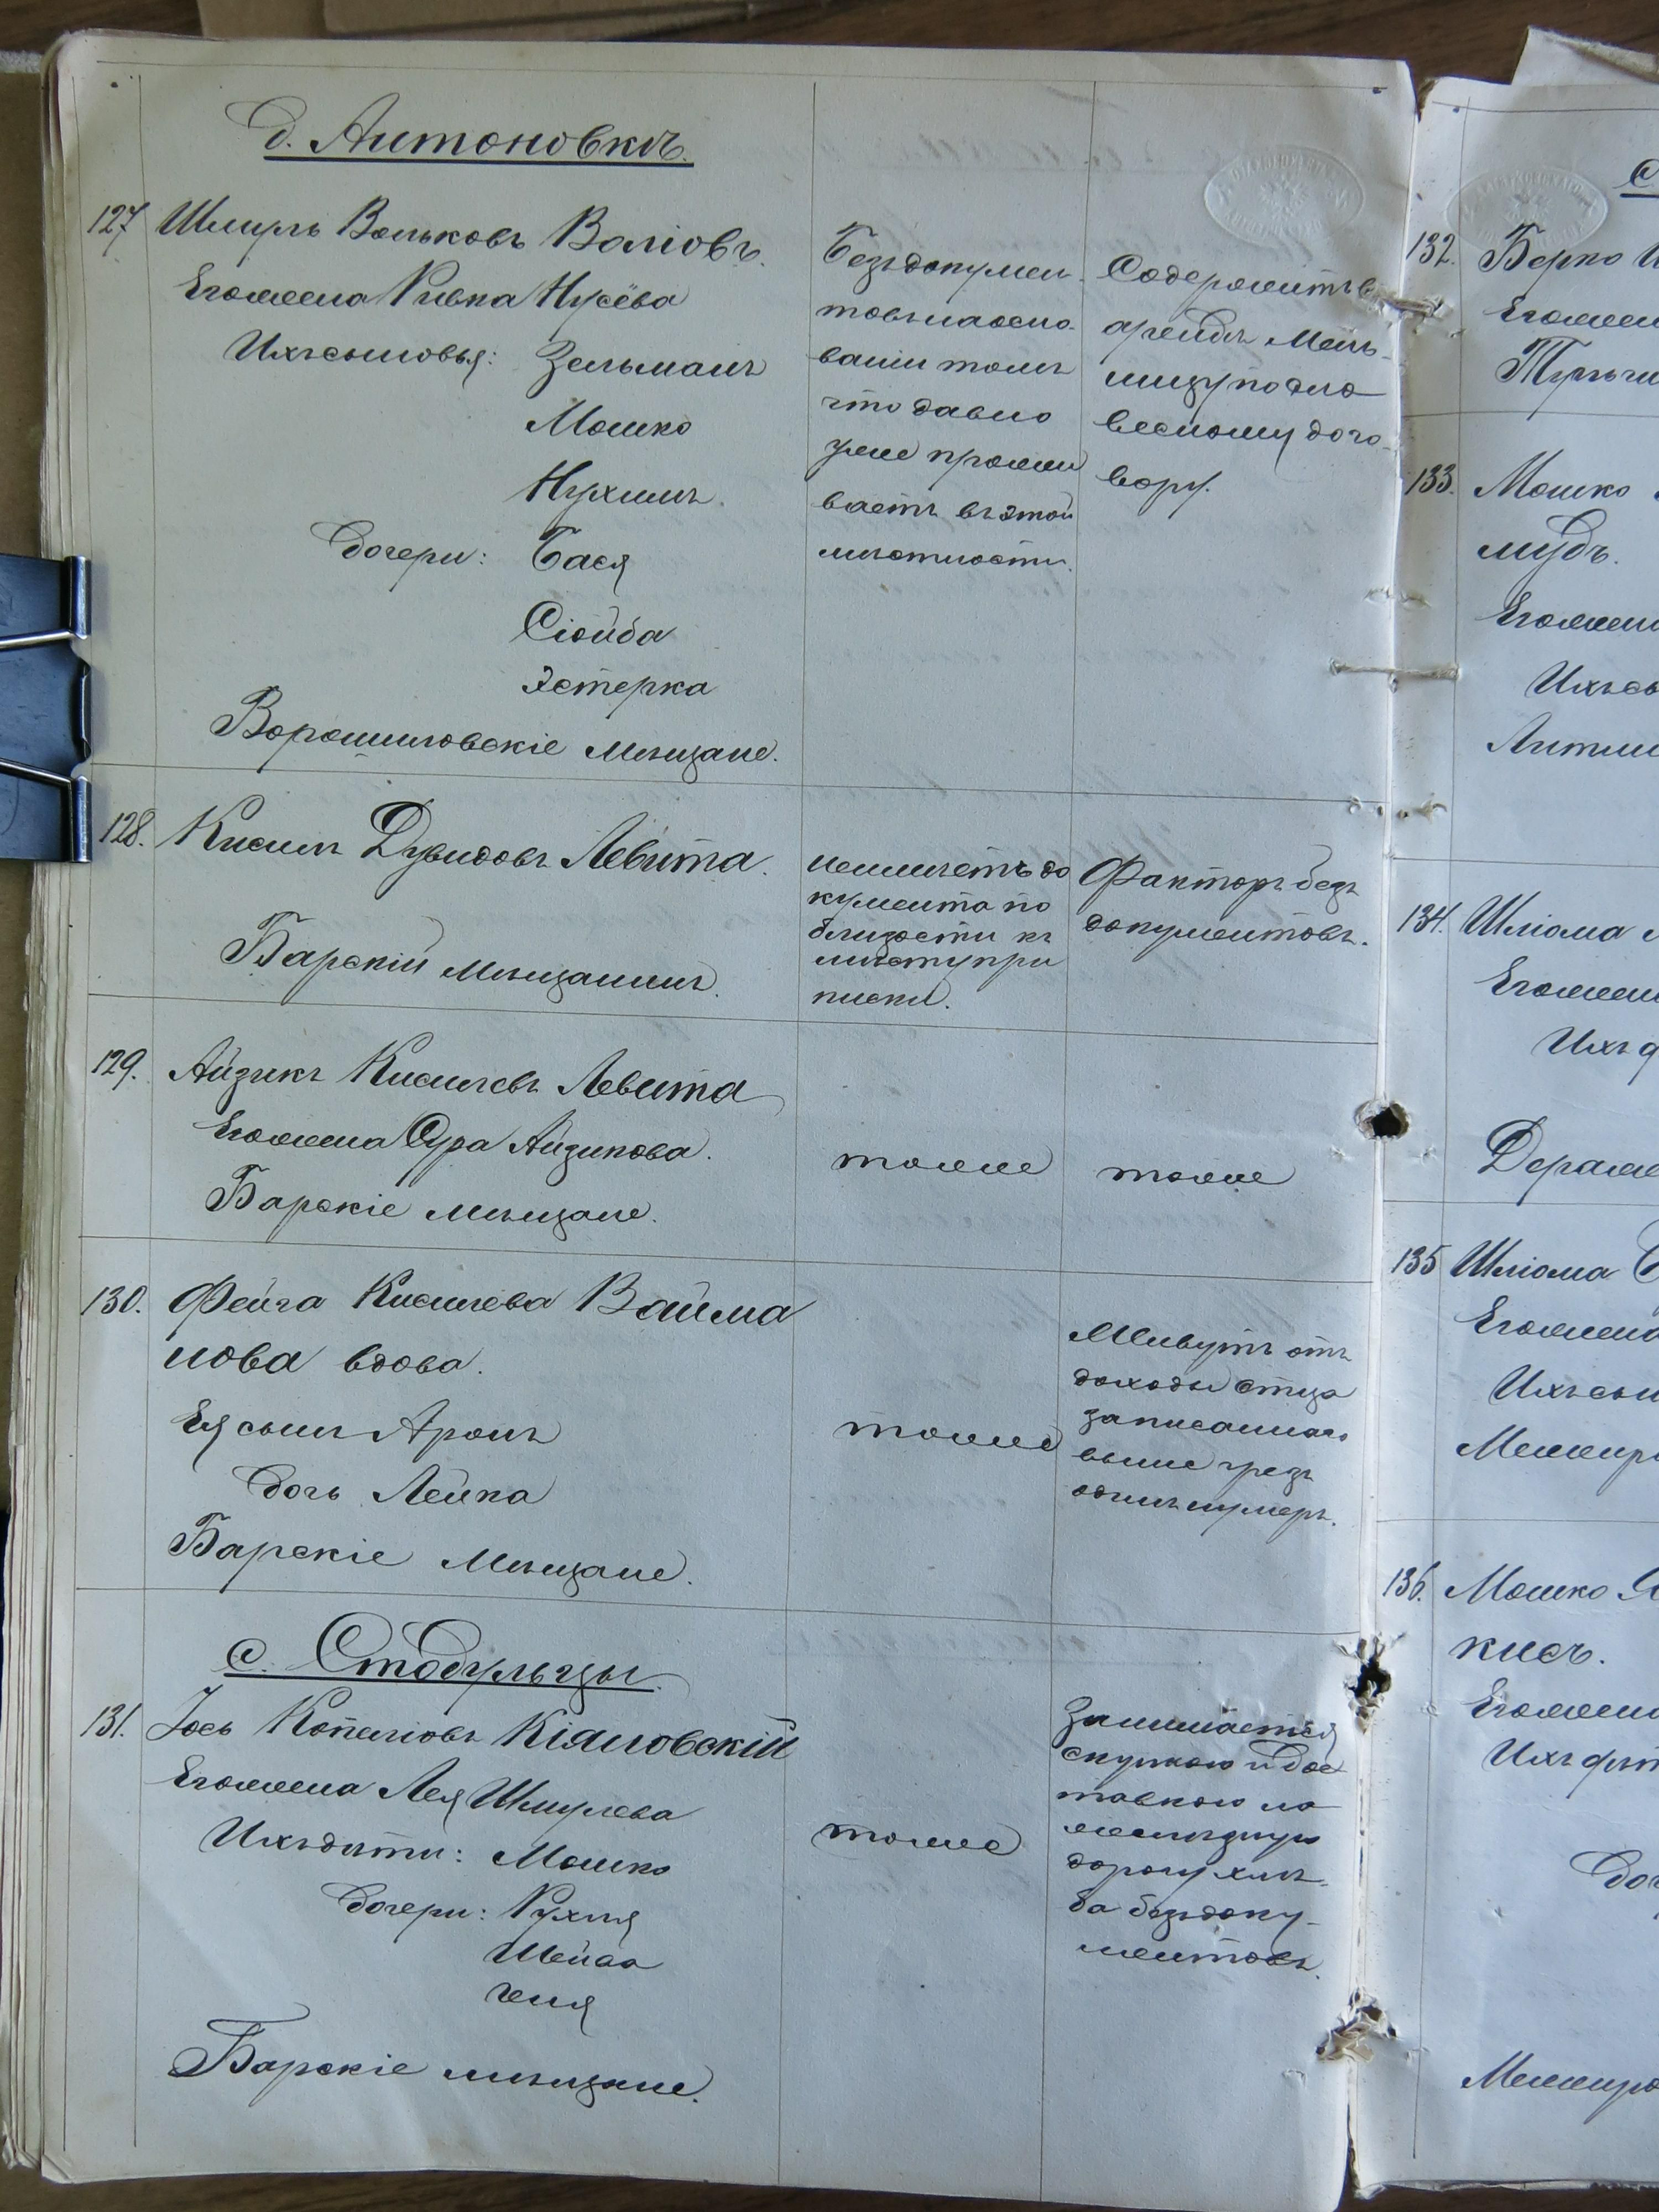 д. Антоновкѣ.
127 Шмуль Вольковъ Воліовъ.
Его жена Ривка Нусёва
Ихъ сыновья: Зельманъ
Мошко
Нухимъ.
Дочери: Бася
Сіойба
Эстерка
Ворошиловскіе мѣщане.
Безъ докумен-
товъ на осно-
ваніи томъ
что давно
уже прожи
ваетъ въ этой
мѣстности.
Содержитъ в
арендѣ Мель-
ницу по сло
весному дого-
вору.
128. Кисиль Дувидовъ Левита.
Барскій Мѣщанинъ.
неимѣетъ до
кумента по
близости къ
мѣсту при
писки.
Факторъ безъ
документовъ.
129. Айзикъ Кисилевъ Левита
Его жена Сура Айзикова.
Барскіе мѣщане.
тоже
тоже
130. Фейга Кисилева Вайма
нова вдова.
Ея сынъ Аронъ
дочь Лейка
Барскіе Мѣщане.
тоже
Живутъ отъ
доходы отца
записаннаго
выше чрезъ
одинъ нумеръ.
с. Стодульцы.
131. Іось Копелiовъ Кіяновскій
Его жена Лея Шмулева
Ихъ дѣти: Мошко
дочери: Рухля
Шейва
Геня
Барскіе мѣщане.
тоже
Занимается
скупкою и дос
тавкою на
желѣзную
дорогу хлѣ-
ба безъ доку-
ментовъ.
с
132. Берко
Его жен
133. Мошко
мудъ.
Его жен
Ихъ сы
Литин
134. Шліома
Его жен
Ихъ
Дераж
135 Шліома
Его жена
Ихъ сын
Межир
136. Мошко
кисъ.
Его жен
Ихъ дѣт
доч
Межиро